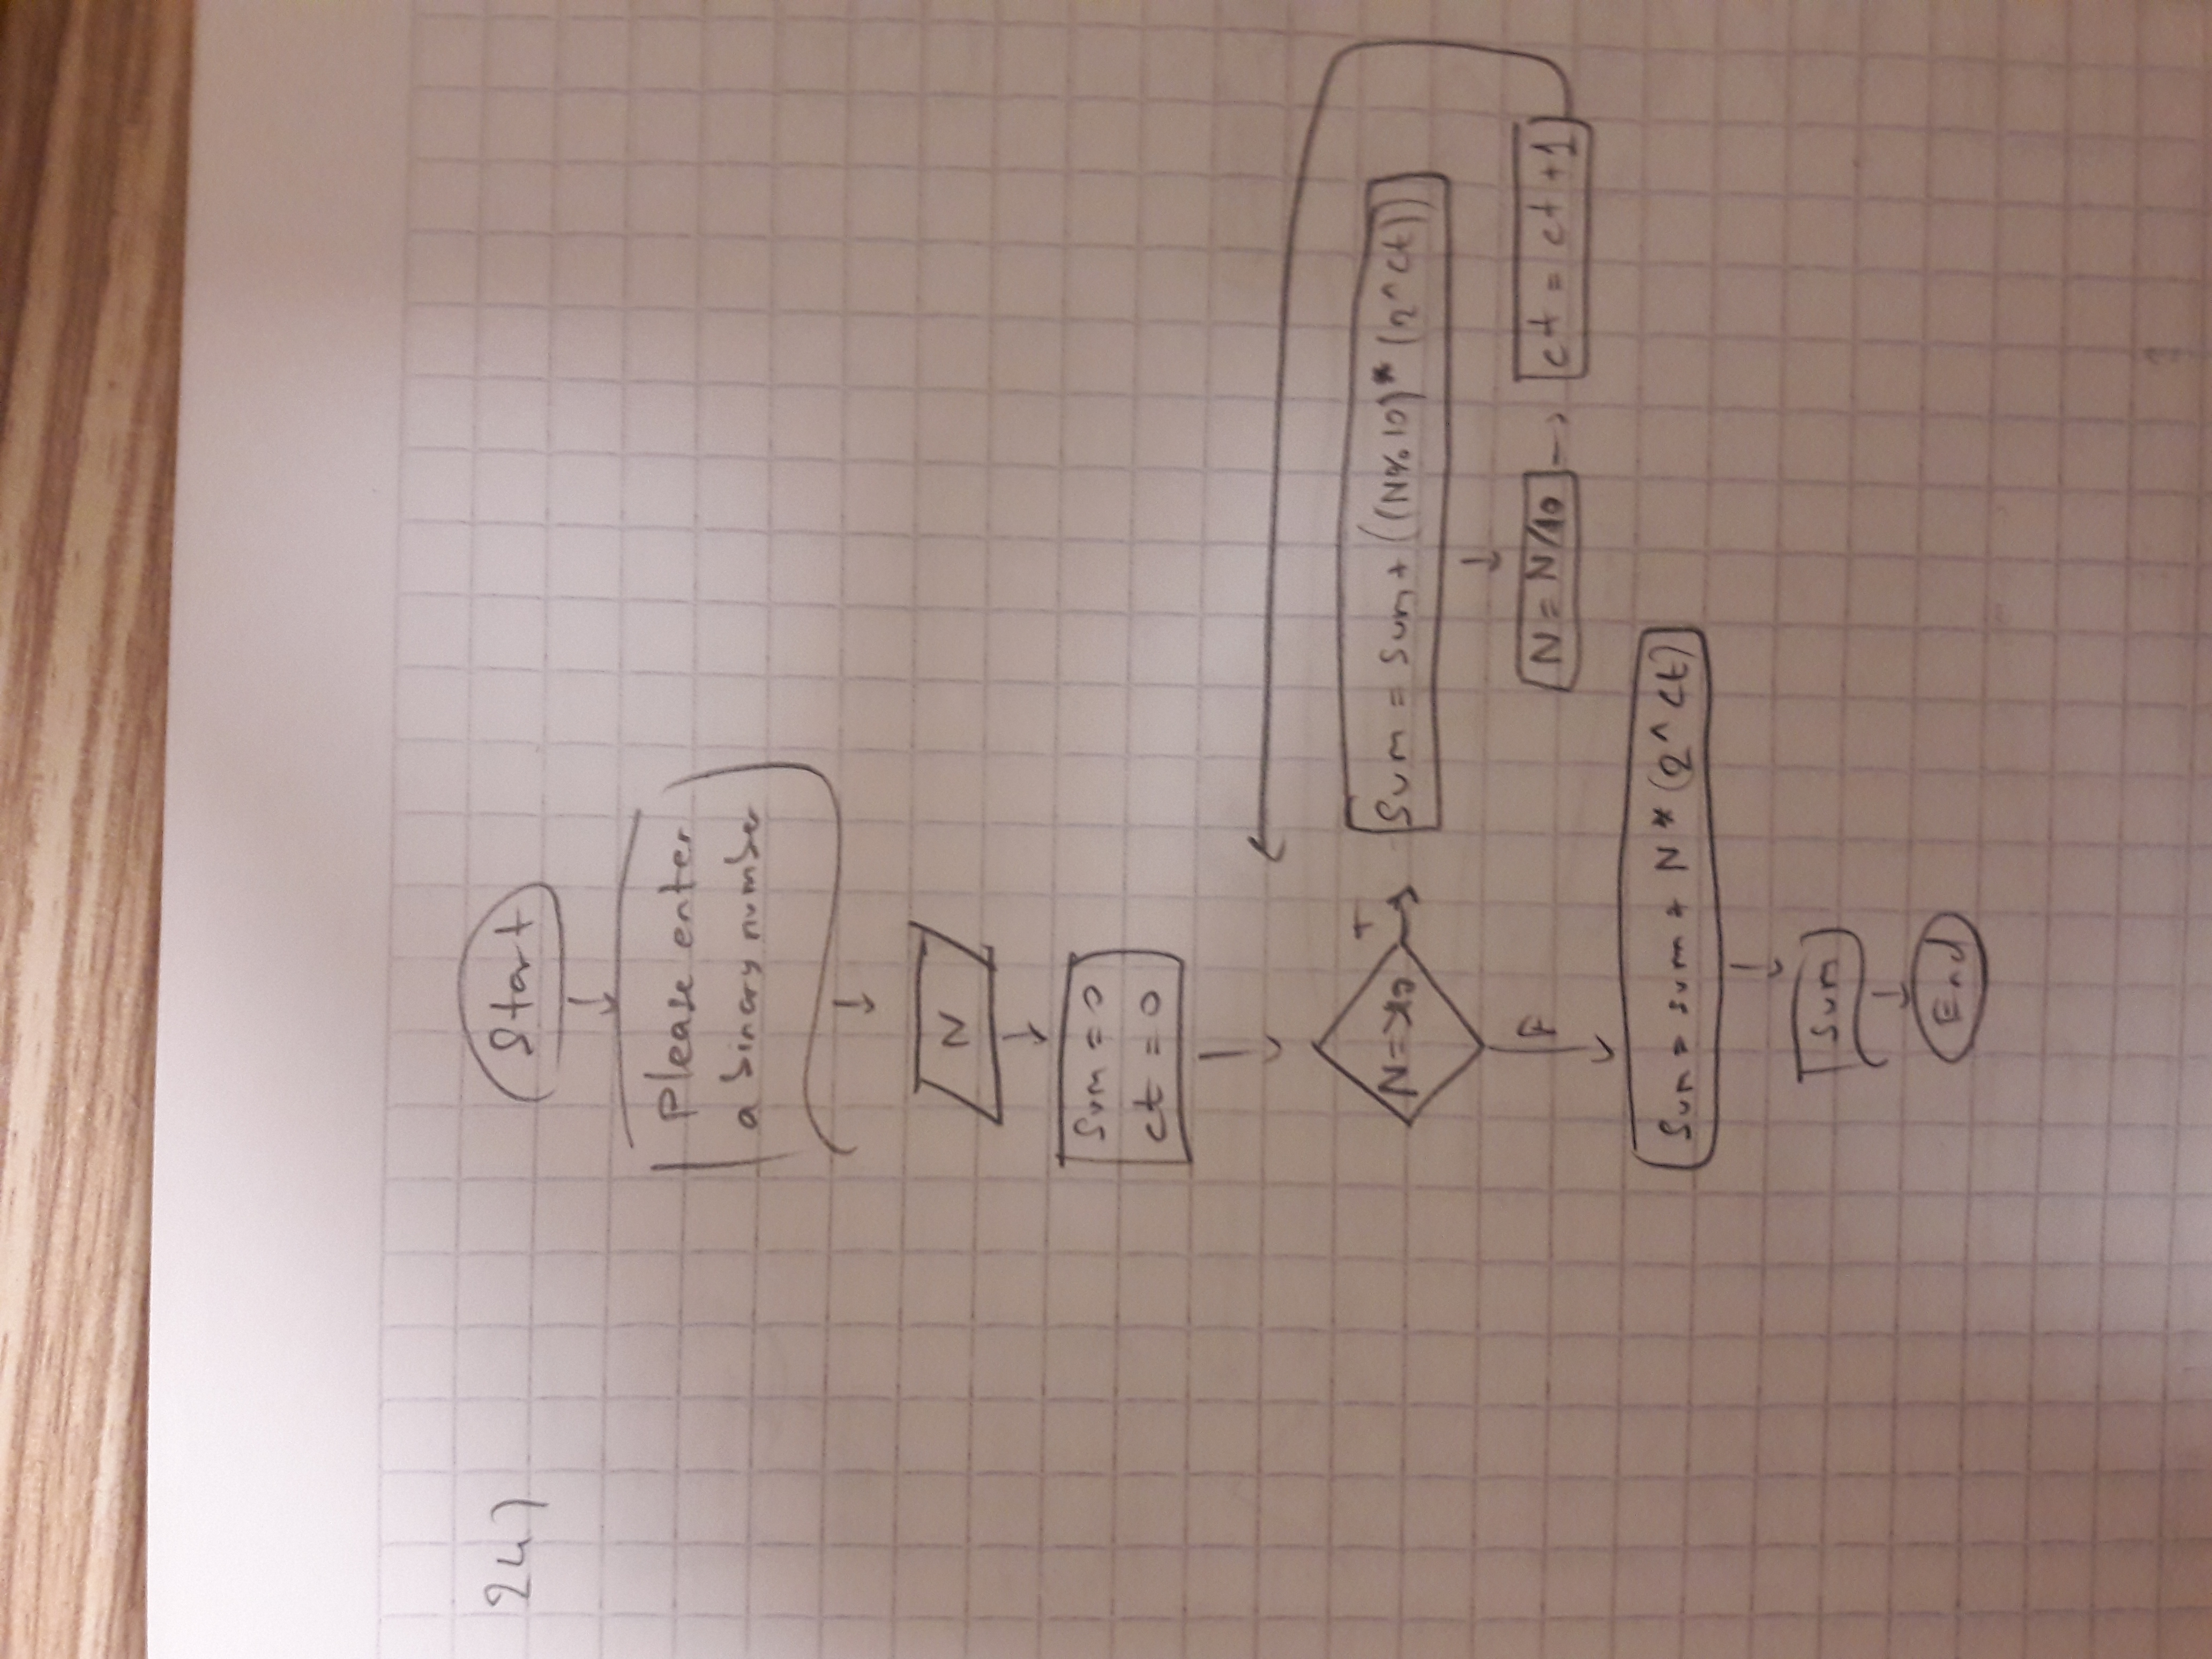 24)
Start
Please enter
a binary number
N
Sum = 0
ct = 0
T
Sum = sum + ((N%10)* (2^ct))
N = N/10
ct = ct +1
F
Sum = sum + N * (2^ct)
Sum
End